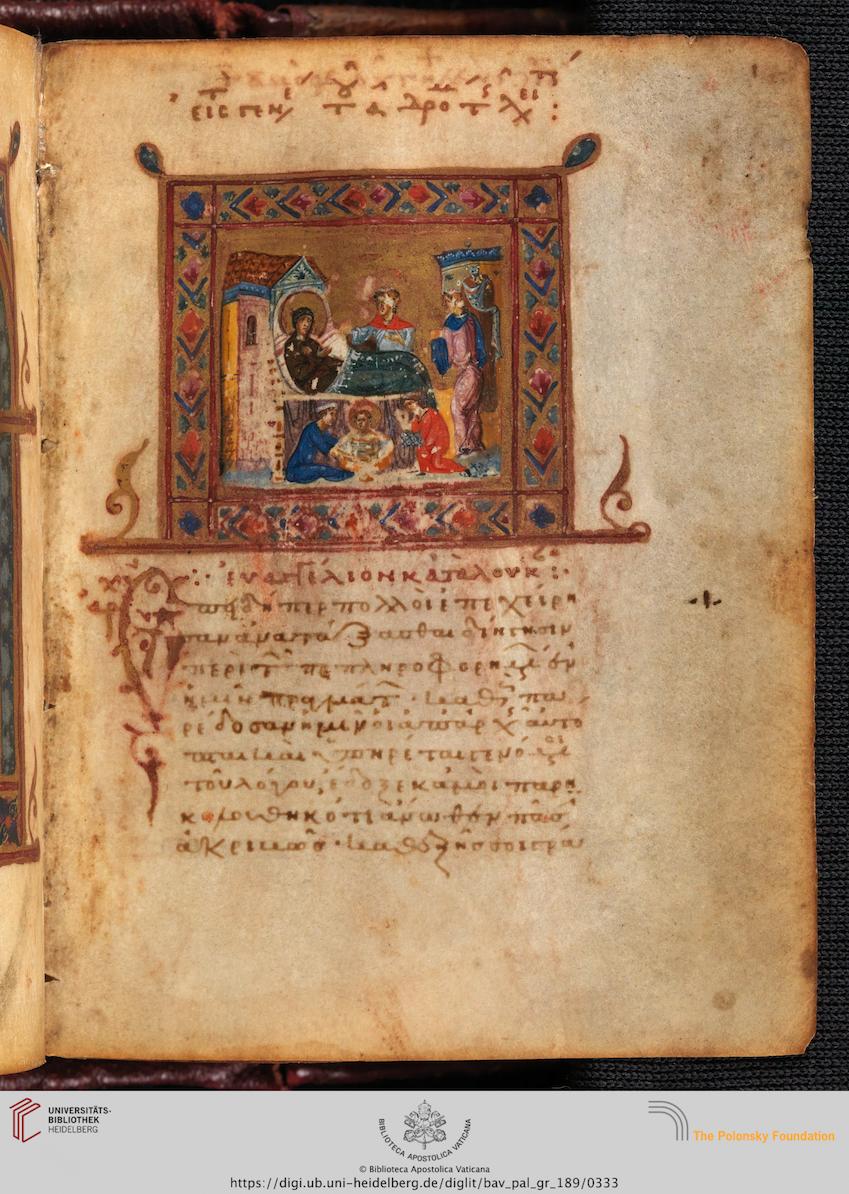 ΕΥΑΓΓΕΛΙΟΝ ΚΑΤΑ ΛΟΥΚ
ἐπειδήπερ πολλοὶ ἐπεχείρη
σαν ἀνατάξασθαι διήγησιν
περὶ τ πεπληροφορημ ἐν
ἡμῖν πραγματ · καθ πα
ρέδοσαν ἡμῖν οἱ ἀπαρχ αὐτό
πται καὶ ὑπηρέται γενόμε
τοῦ λόγου, ἔδοξε κἀμοὶ παρη
κολουθηκότι ἄνωθεν πᾶσ
ἀκριβῶς · καθεξῆς σοι γρά
UNIVERSITÄTS-
BIBLIOTHEK
HEIDELBERG
BIBLIOTECA APOSTOLICA VATICANA
The Polonsky Foundation
© Biblioteca Apostolica Vaticana
https://digi.ub.uni-heidelberg.de/diglit/bav_pal_gr_189/0333